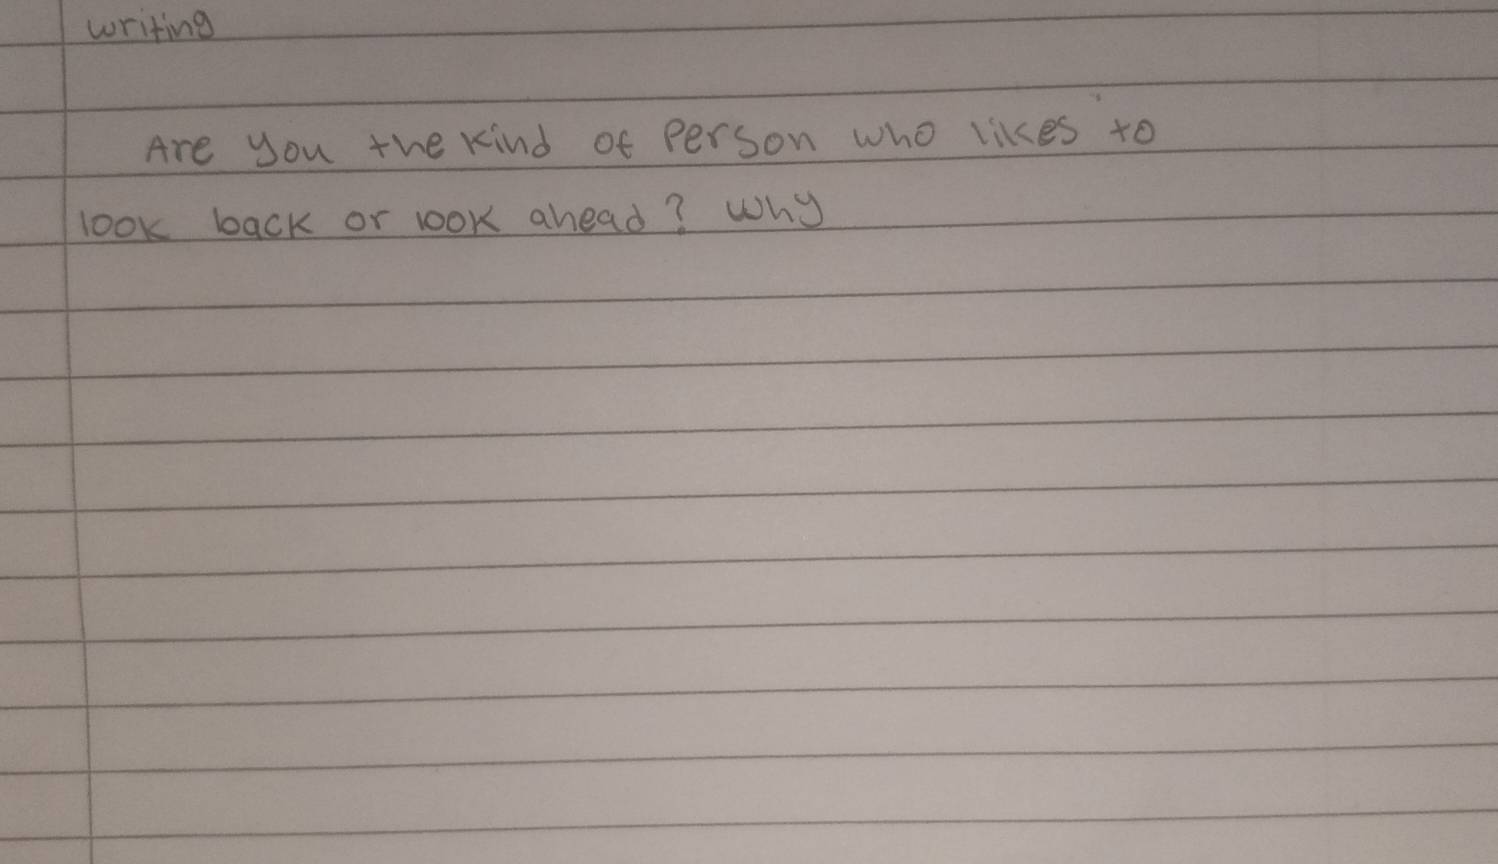 writing
Are you the kind of Person who likes to
look back or look ahead? why